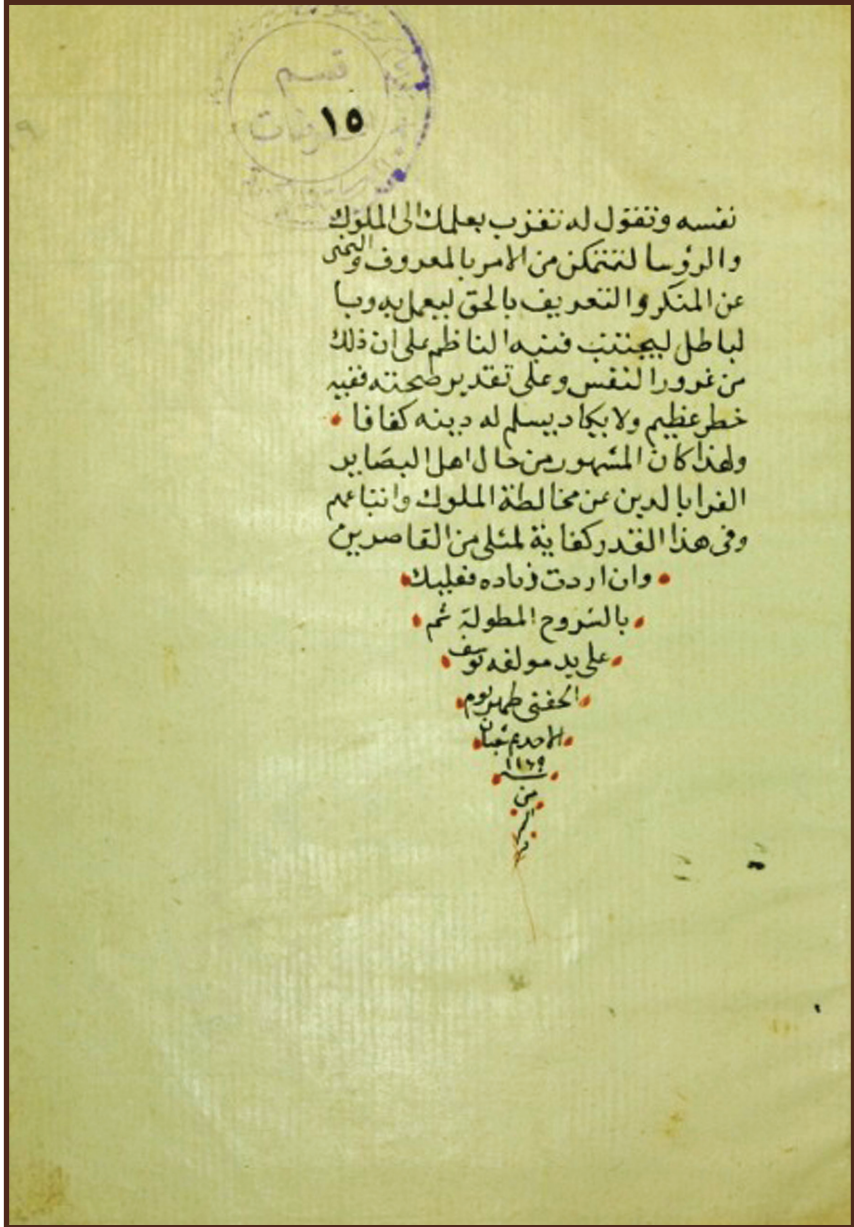 قسم
١٥
نفسه وتقول له تقرب بعلمك الى الملوك
والرؤسا لتتمكن من الامر بالمعروف والنهى
عن المنكر والتعريف بالحق ليعمل به وبا
لباطل ليجتنب فنبه الناظم على ان ذلك
من غرور النفس وعلى تقدير صحته ففيه
خطر عظيم ولا يكاد يسلم له دينه كفافا
ولهذا كان المشهور من حال اهل البصاير
الفرا بالدين عن مخالطة الملوك واتباعهم
وفى هذا القدر كفاية لمثلى من القاصرين
وان اردت زياده فعليك
بالشروح المطولة تم
على يد مولفه يوسف
الحفنى ظهر يوم
الاحد شعبان
١١٦٩
من